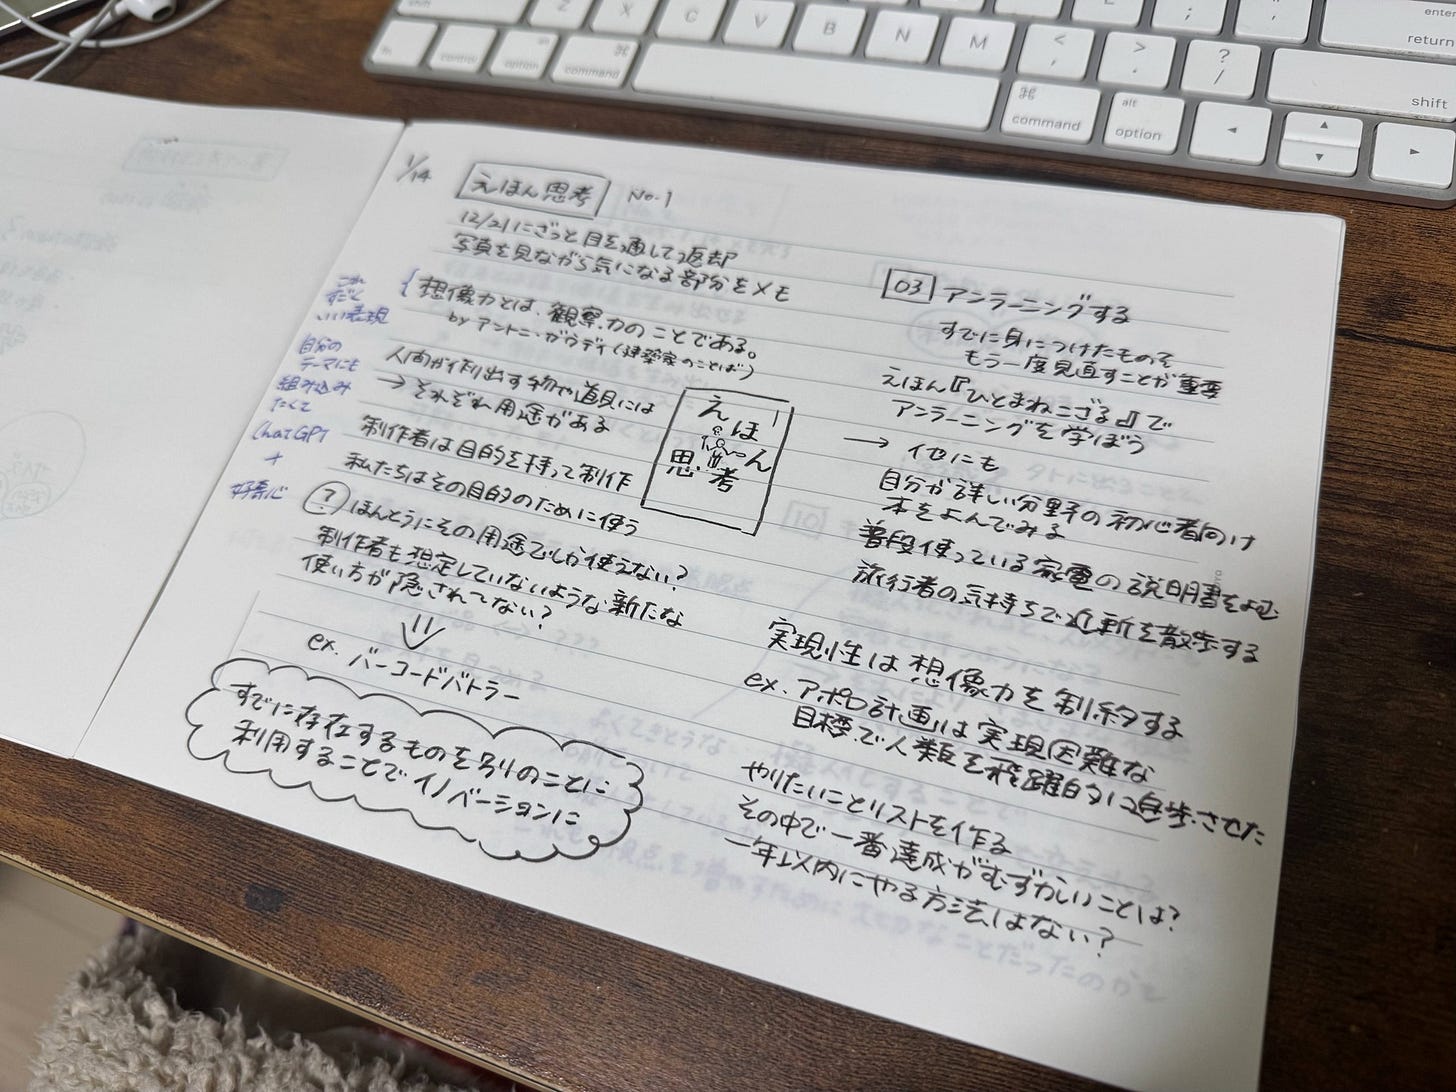 1/14
えほん思考 No.1
12/21にざっと目を通して返却
写真を見ながら気になる部分をメモ
想像力とは、観察力のことである。
by アントニ・ガウディ(建築家のことば)
人間が作り出す物や道具には
→ それぞれ用途がある
制作者は目的を持って制作
私たちはその目的のために使う
? ほんとうにその用途でしか使えない?
制作者も想定していないような新たな
使い方が隠されてない?
ex. バーコードバトラー
すでに存在するものを別のことに
利用することでイノベーションに
いい表現
自分の
テーマにも
組み込み
たくて
ChatGPT
+
好奇心
えほん
思考
03 アンラーニングする
すでに身につけたものを
もう一度見直すことが重要
えほん『ひとまねこざる』で
アンラーニングを学ぼう
→ 他にも
自分が詳しい分野の初心者向け
本をよんでみる
普段使っている家電の説明書をよむ
旅行者の気持ちで近所を散歩する
実現性は想像力を制約する
ex. アポロ計画は実現困難な
目標で人類を飛躍的に進歩させた
やりたいことリストを作る
その中で一番達成がむずかしいことは?
一年以内にやる方法はない?
fn
control
option
command
Z
X
C
V
B
N
M
<
,
>
.
?
/
command
alt
option
enter
return
shift